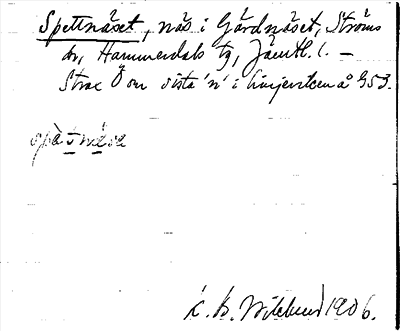 Spettnäset, näs i Gärdnäset, Ströms
sn, Hammerdals tg, Jämtl. l. —
Strax Ö om sista 'n' i linjevken å G53.
spä̀tnése
K. B. Wiklund 1906.